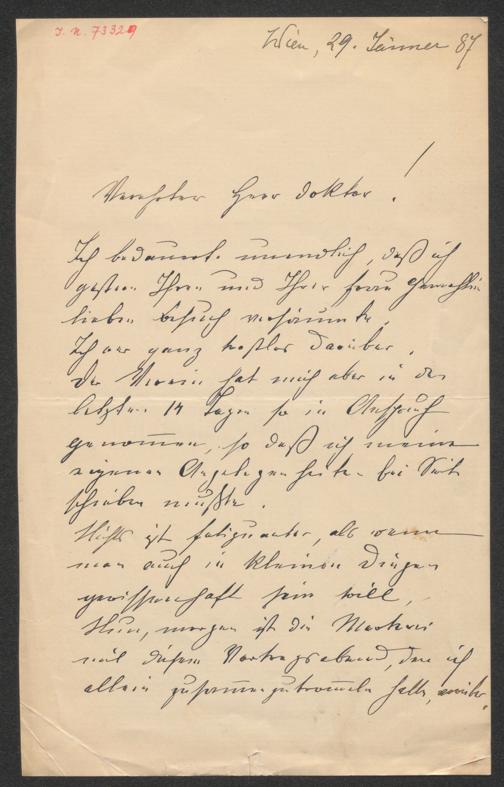 J. N. 73329
Wien, 29. Jänner 87
Verehrter Herr Doktor!
Ich bedauerte unendlich, daß ich
gestern Ihren und Ihrer Frau Gemahlin
lieben Besuch versäumte.
Ich war ganz trostlos darüber.
Der Verein hat mich aber in den
letzten 14 Tagen so in Anspruch
genommen, so daß ich meine
eigenen Angelegenheiten bei Seite
schieben mußte.
Nichts ist fatiguanter, als wenn
man auch in kleinen Dingen
gewissenhaft sein will,
Nun, morgen ist die
mit diesem Vortragsabend, den ich
allein zusammenzutrommeln hatte,